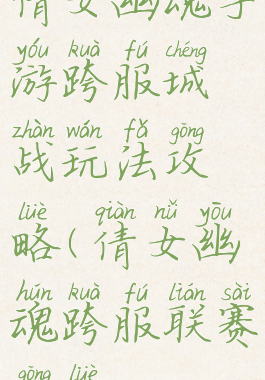 倩女幽魂手
yóu kuà fú chéng
游跨服城
zhàn wán fǎ gōng
战玩法攻
lüè qiàn nǚ yōu
略(倩女幽
hún kuà fú lián sài
魂跨服联赛
gōng lüè